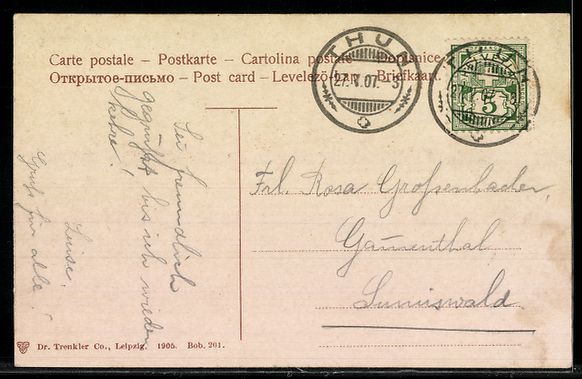 Carte postale – Postkarte – Cartolina postale – Dopisnice
Открытое-письмо – Post card – Levelező-Lap – Briefkaart.
THUN
27.X.07. 3
THUN
5
Sei freundlich
gegrüsst bis ich wieder
kehre!
Luise.
Gruss für alle!
Frl. Rosa Grossenbacher
Gammenthal
Sumiswald
Dr. Trenkler Co., Leipzig. 1905. Bob. 261.